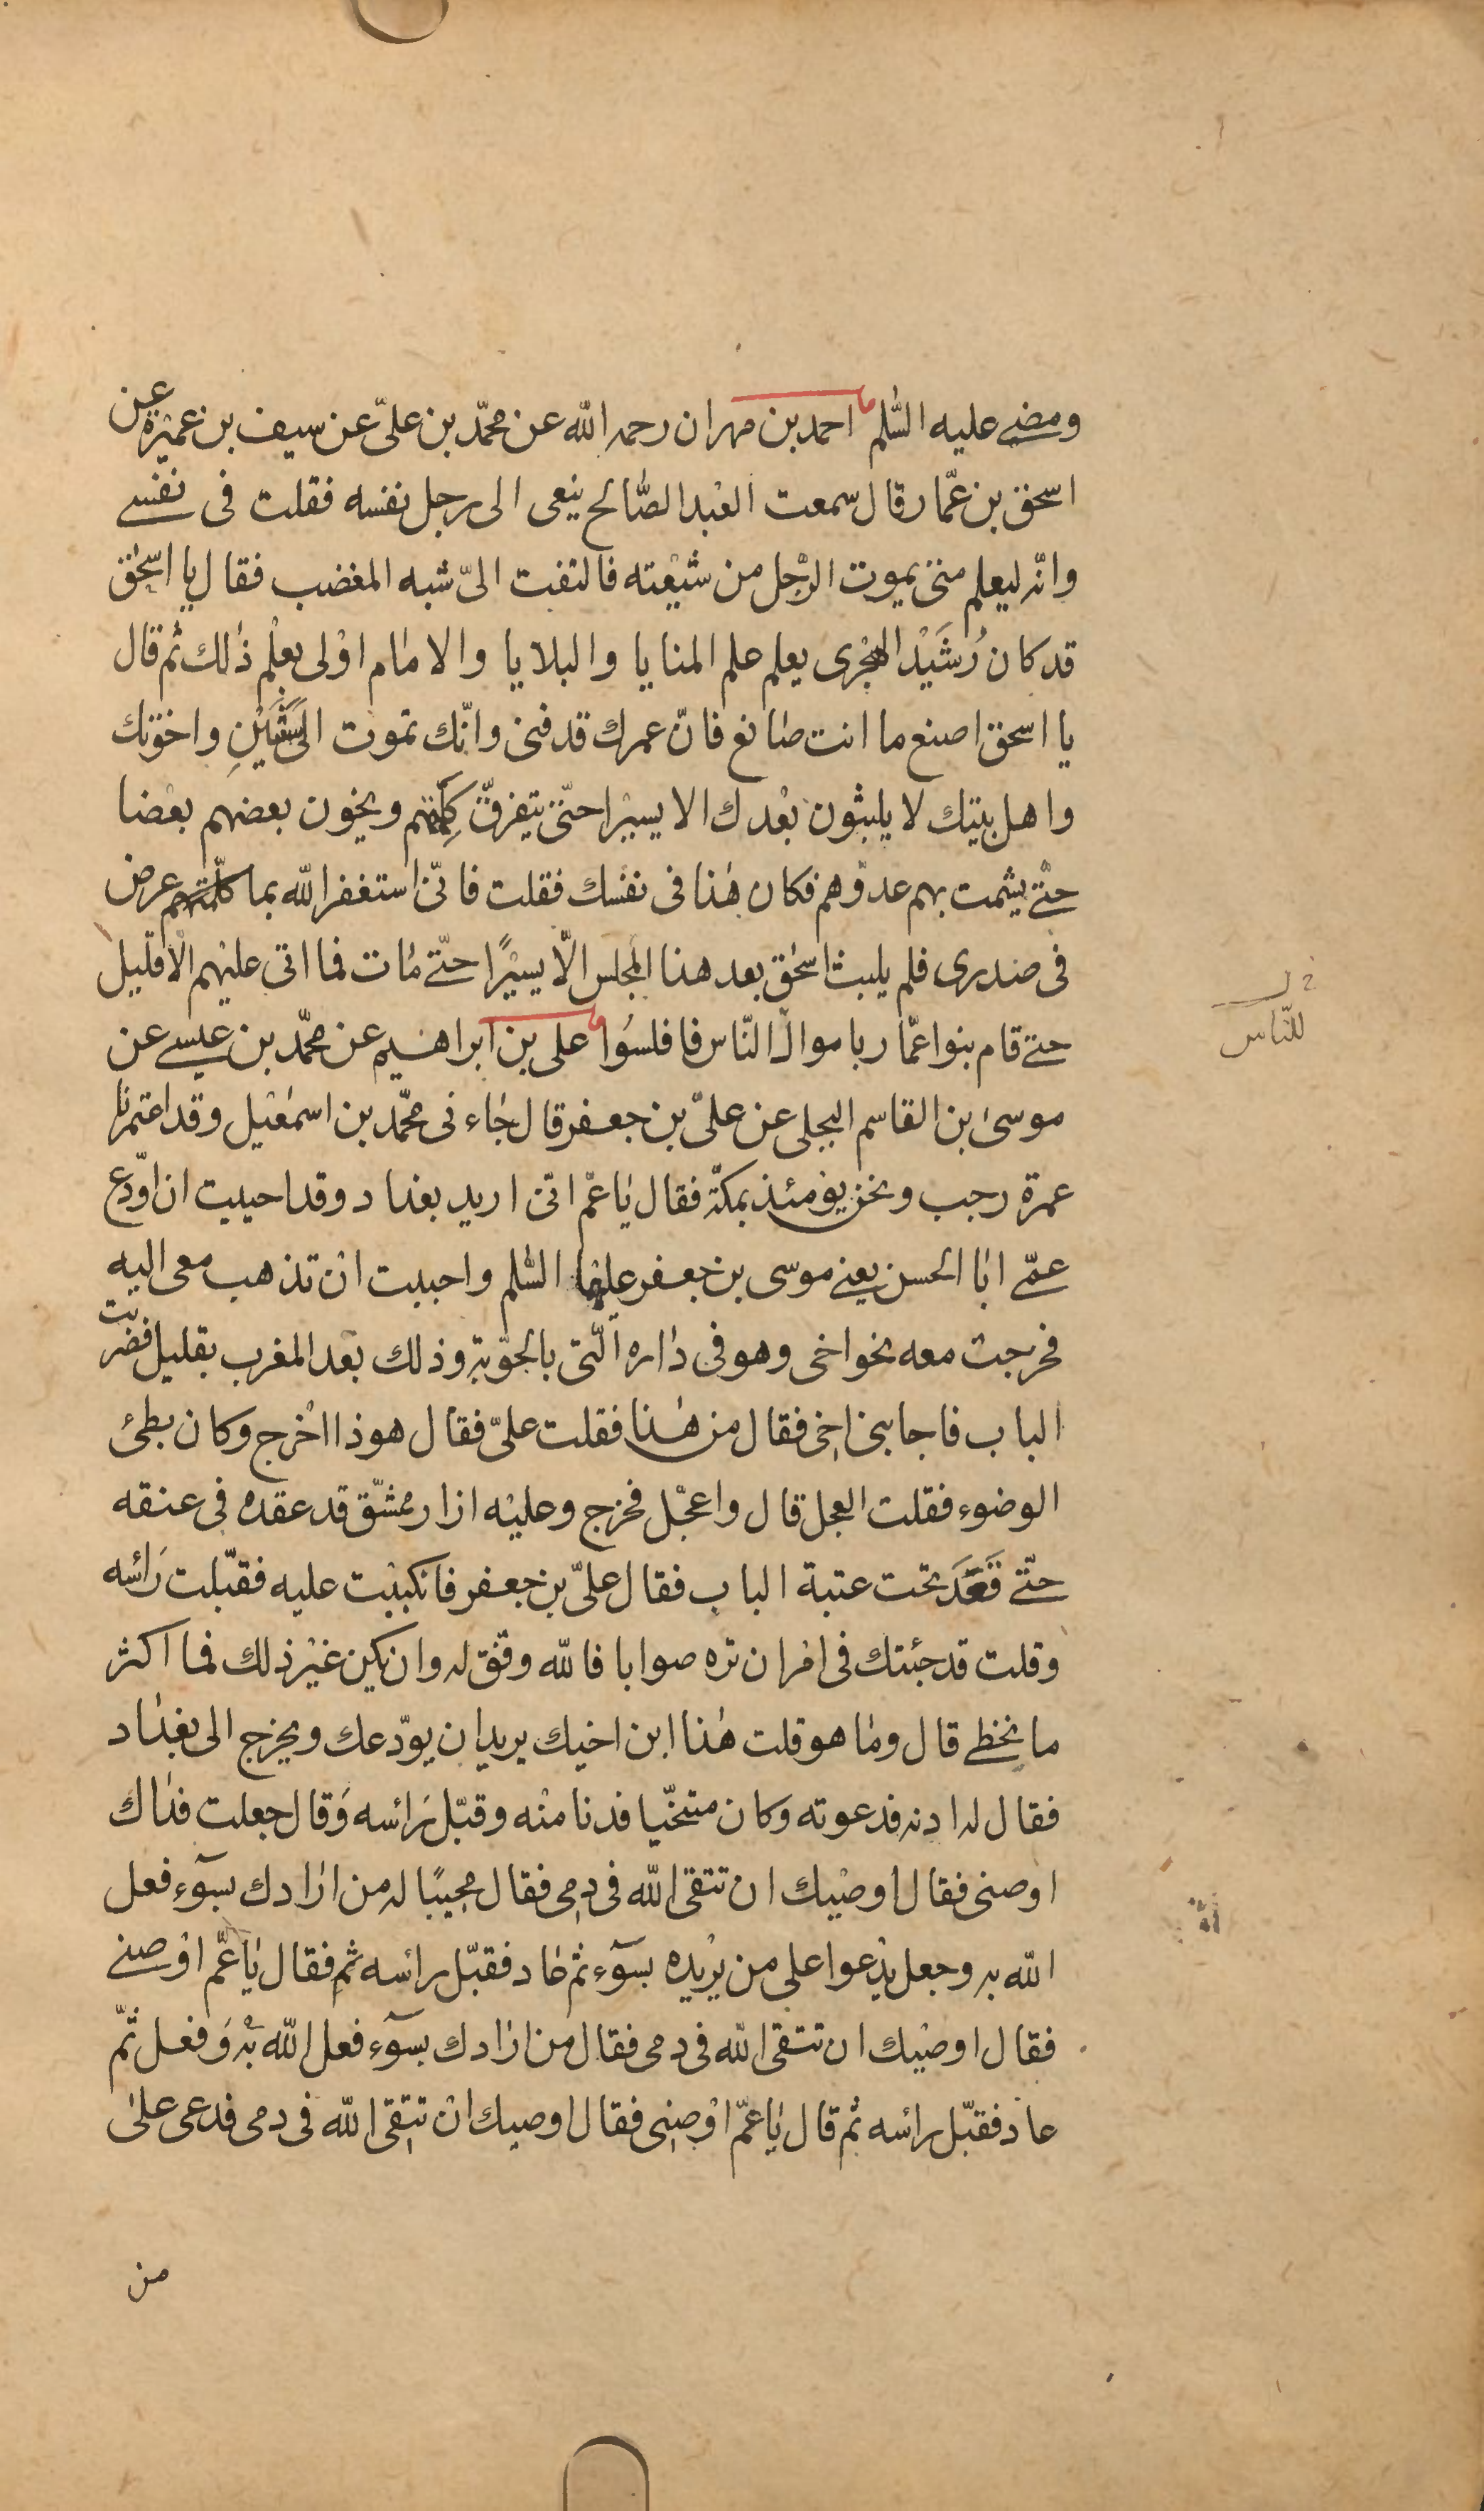 ومضى عليه السّلم احمد بن مهران رحمه الله عن محمّد بن علىّ عن سيف بن عميرة عن
اسحق بن عمّار قال سمعت العبد الصّالح ينعى الى رجل نفسه فقلت فى نفسى
وانّه ليعلم متى يموت الرّجل من شيعته فالتفت الىّ شبه المغضب فقال يا اسحٰق
قد كان رُشَيْد الهجرى يعلم علم المنايا والبلايا والامام اولى بعلم ذٰلك ثم قال
يا اسحق اصنع ما انت صانع فانّ عمرك قد فنى وانّك تموت الى سَنَتَيْنِ واخوتك
واهل بيتك لا يلبثون بعدك الا يسيرا حتّى يتفرّق كلمتهم ويخون بعضهم بعضا
حتّى يشمت بهم عدوّهم فكان هٰذا فى نفسك فقلت فانّى استغفر الله بما عرض
فى صدرى فلم يلبث اسحٰق بعد هذا المجلس الّا يسيرًا حتّى مات فما اتى عليهم الّا قليل
حتى قام بنوا عمّار باموال النّاس فافلسُوا على بن ابراهيم عن محمّد بن عيسى عن
موسىٰ بن القاسم البجلى عن علىّ بن جعفر قال جاءنى محمّد بن اسمٰعيل وقد اعتمرنا
عمرة رجب ونحن يومئذ بمكّة فقال يا عمّ انّى اريد بغداد وقد احببت ان اودّع
عمّى ابا الحسن يعنى موسى بن جعفر عليهما السّلم واحببت ان تذهب معى اليه
فخرجت معه نحو اخى وهو فى داره الّتى بالحوبة وذلك بعد المغرب بقليل فضربت
الباب فاجابنى اخى فقال من هٰذا فقلت علىّ فقال هو ذا اخرج وكان بطئ
الوضوء فقلت العجل قال واعجل فخرج وعليه ازار ممشّق قد عقده فى عنقه
حتّى قَعَدَ تحت عتبة الباب فقال علىّ بن جعفر فانكببت عليه فقبّلت رأسه
وقلت قد جئتك فى امر ان تره صوابا فالله وفّق له وان يكن غير ذلك فما اكثر
ما نخطى قال وما هو قلت هٰذا ابن اخيك يريد ان يودّعك ويخرج الى بغداد
فقال له ادنه فدعوته وكان متنحّيا فدنا منه وقبّل رأسه وقال جعلت فداك
اوصنى فقال اوصيك ان تتقى الله فى دمى فقال مجيبًا له من ارادك بسوٓء فعل
الله به وجعل يدعوا على من يريده بسوٓء ثم عاد فقبّل رأسه ثم فقال يا عمّ اوصنى
فقال اوصيك ان تتقى الله فى دمى فقال من ارادك بسوٓء فعل الله به وفعل ثمّ
عاد فقبّل رأسه ثم قال يا عمّ اوصنى فقال اوصيك ان تتقى الله فى دمى فدعى علىٰ
من
للنّاس